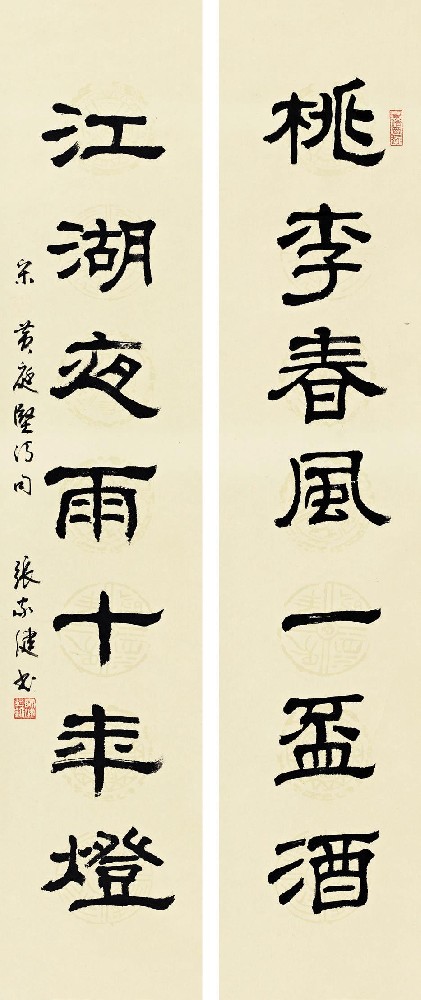 桃李春風一盃酒
江湖夜雨十年燈
宋 黃庭堅詩句 張家健書